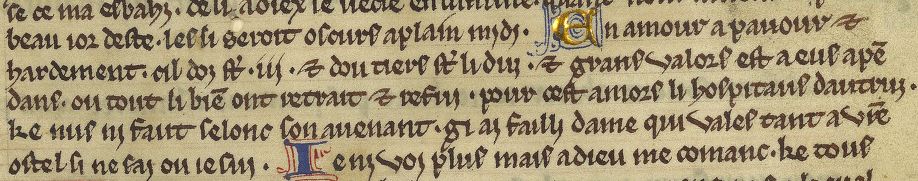 se ce ma esbahi · de li auoiex le siecle en
beau ior deste · les li seroit oscurs a plain midi · En amour a pauour ⁊
hardement · cil doi st̄ · iii · ⁊ dou tiers st̄ li dui · ⁊ grans valors est a eus apē
dans · ou tout li biē ont retrait ⁊ refui · pour cest amors li hospitaus dautrui ·
ke nus ni faut selonc son auenant · gi ai failli dame qui vales tant a vr̄e
ostel si ne sai ou ie sui · Ie ni voi plus mais adieu me comanc · ke tous